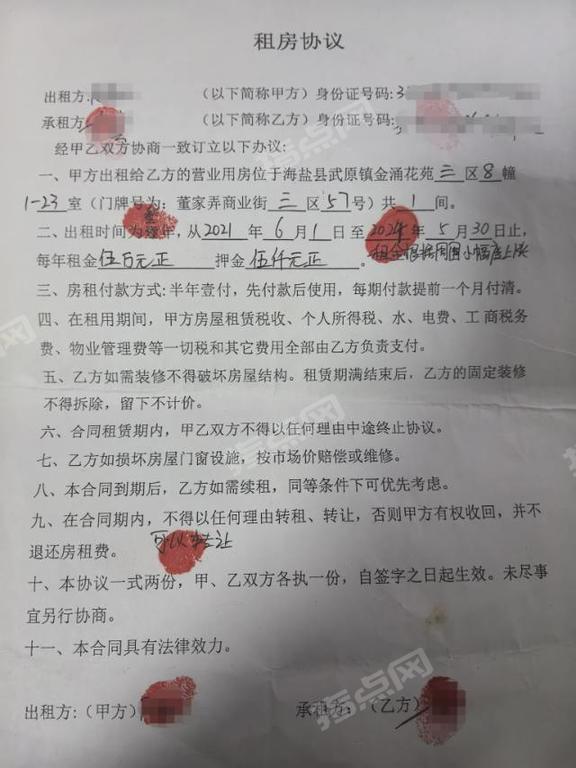 租房协议
出租方: （以下简称甲方）身份证号码:3
承租方: （以下简称乙方）身份证号码:
经甲乙双方协商一致订立以下办议:
一、甲方出租给乙方的营业用房位于海盐县武原镇金涌花苑三区8幢
1-23室（门牌号为：董家弄商业街三区57号）共1间。
二、出租时间为叁年，从2021年6月1日至2024年5月30日止，
每年租金伍万元正 押金伍仟元正。租金根据周围小幅度上涨
三、房租付款方式:半年壹付，先付款后使用，每期付款提前一个月付清。
四、在租用期间，甲方房屋租赁税收、个人所得税、水、电费、工商税务
费、物业管理费等一切税和其它费用全部由乙方负责支付。
五、乙方如需装修不得破坏房屋结构。租赁期满结束后，乙方的固定装修
不得拆除，留下不计价。
六、合同租赁期内，甲乙双方不得以任何理由中途终止协议。
七、乙方如损坏房屋门窗设施，按市场价赔偿或维修。
八、本合同到期后，乙方如需续租，同等条件下可优先考虑。
九、在合同期内，不得以任何理由转租、转让，否则甲方有权收回，并不
退还房租费。 可以转让
十、本协议一式两份，甲、乙双方各执一份，自签字之日起生效。未尽事
宜另行协商。
十一、本合同具有法律效力。
出租方:（甲方） 承租方:（乙方）
指点网